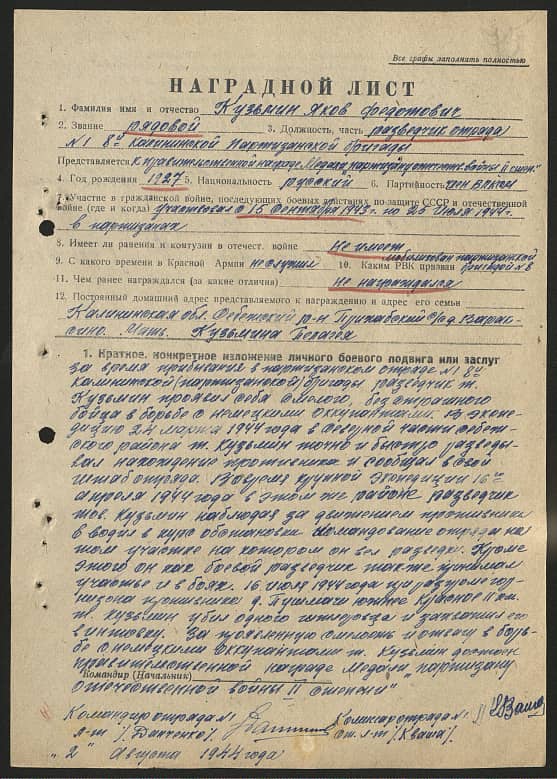 Все графы заполнять полностью
НАГРАДНОЙ ЛИСТ
1. Фамилия имя и отчество Кузьмин Яков Федотович
2. Звание рядовой 3. Должность, часть разведчик отряда
№1 8й Калининской Партизанской бригады
Представляется к правительственной награде Медаль партизану отечеств. войны II степ."
4. Год рождения 1927 5. Национальность русский 6. Партийность член ВЛКСМ
7. Участие в гражданской войне, последующих боевых действиях по защите СССР и отечественной
войне (где и когда) участвовал с 15 Сентября 1943г. по 25 Июля 1944г.
в партизанах
8. Имеет ли ранения и контузии в отечест. войне Не имеет
мобилизован партизанской
9. С какого времени в Красной Армии не служил 10. Каким РВК призван бригадой №8
11. Чем ранее награждался (за какие отличия) Не награждался
12. Постоянный домашний адрес представляемого к награждению и адрес его семьи
Калининская обл. Себежский р-н с/сов.
Мать. Кузьмина
1. Краткое, конкретное изложение личного боевого подвига или заслуг
За время пребывания в партизанском отряде №1 8й
Калинитской (партизанской) бригады разведчик т.
Кузьмин проявил себя смелого, бесстрашного
бойца в борьбе с немецкими оккупантами. В экспе-
дицию 24 марта 1944 года в северной части себеж-
ского района т. Кузьмин точно и быстро разведы-
вал нахождение противника и сообщал в свой
штаб отряда. Во время крупной экспедиции 16го
апреля 1944 года в этом же районе разведчик
тов. Кузьмин наблюдая за движением противника
вводил в курс обстановки командование отряда на
том участке на котором он вел разведку. Кроме
этого он как боевой разведчик также принимал
участье и в боях. 16 июля 1944 года при разгроме гар-
низона противника д. южнее Красное II км.
т. Кузьмин убил одного гитлеровца и захватил его
винтовку. За проявленную смелость и отвагу в борь-
бе с немецкими оккупантами т. Кузьмин достоин
правительственной награде Медали „партизану
Командир (Начальник)
отечественной войны II степени"
Командир отряда №1 Комиссар отряда №1
л-т /Панченко/ ст. л-т /Кваша/
„2" Августа 1944 года